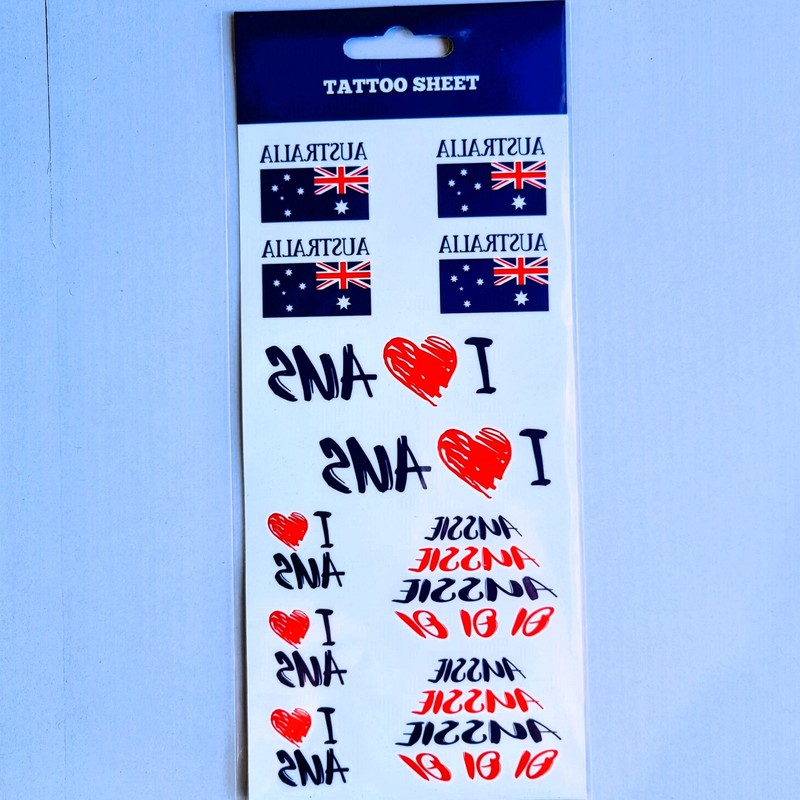 TATTOO SHEET
AUSTRALIA
AUSTRALIA
AUSTRALIA
AUSTRALIA
I AUS
I AUS
I
AUS
I
AUS
I
AUS
AUSSIE
AUSSIE
AUSSIE
OI OI OI
AUSSIE
AUSSIE
AUSSIE
OI OI OI